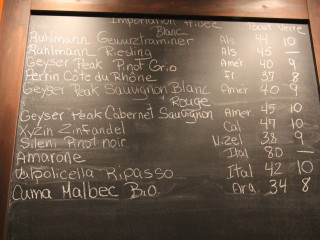 Importation Privée Bout Verre
Blanc
Ruhlmann Gewurztraminer Als 44 10
Ruhlmann Riesling Als 45 —
Geyser Peak Pinot Grio Amér 40 9
Perrin Côte du Rhône Fr 37 8
Geyser Peak Sauvignon Blanc Amer 40 9
Rouge
Geyser Peak Cabernet Sauvignon Amer 45 10
Xyzin Zinfandel Cal 47 10
Sileni Pinot noir N.Zel 38 9
Amarone Ital 80 —
Valpolicella Ripasso Ital 42 10
Cuma Malbec Bio Arg 34 8